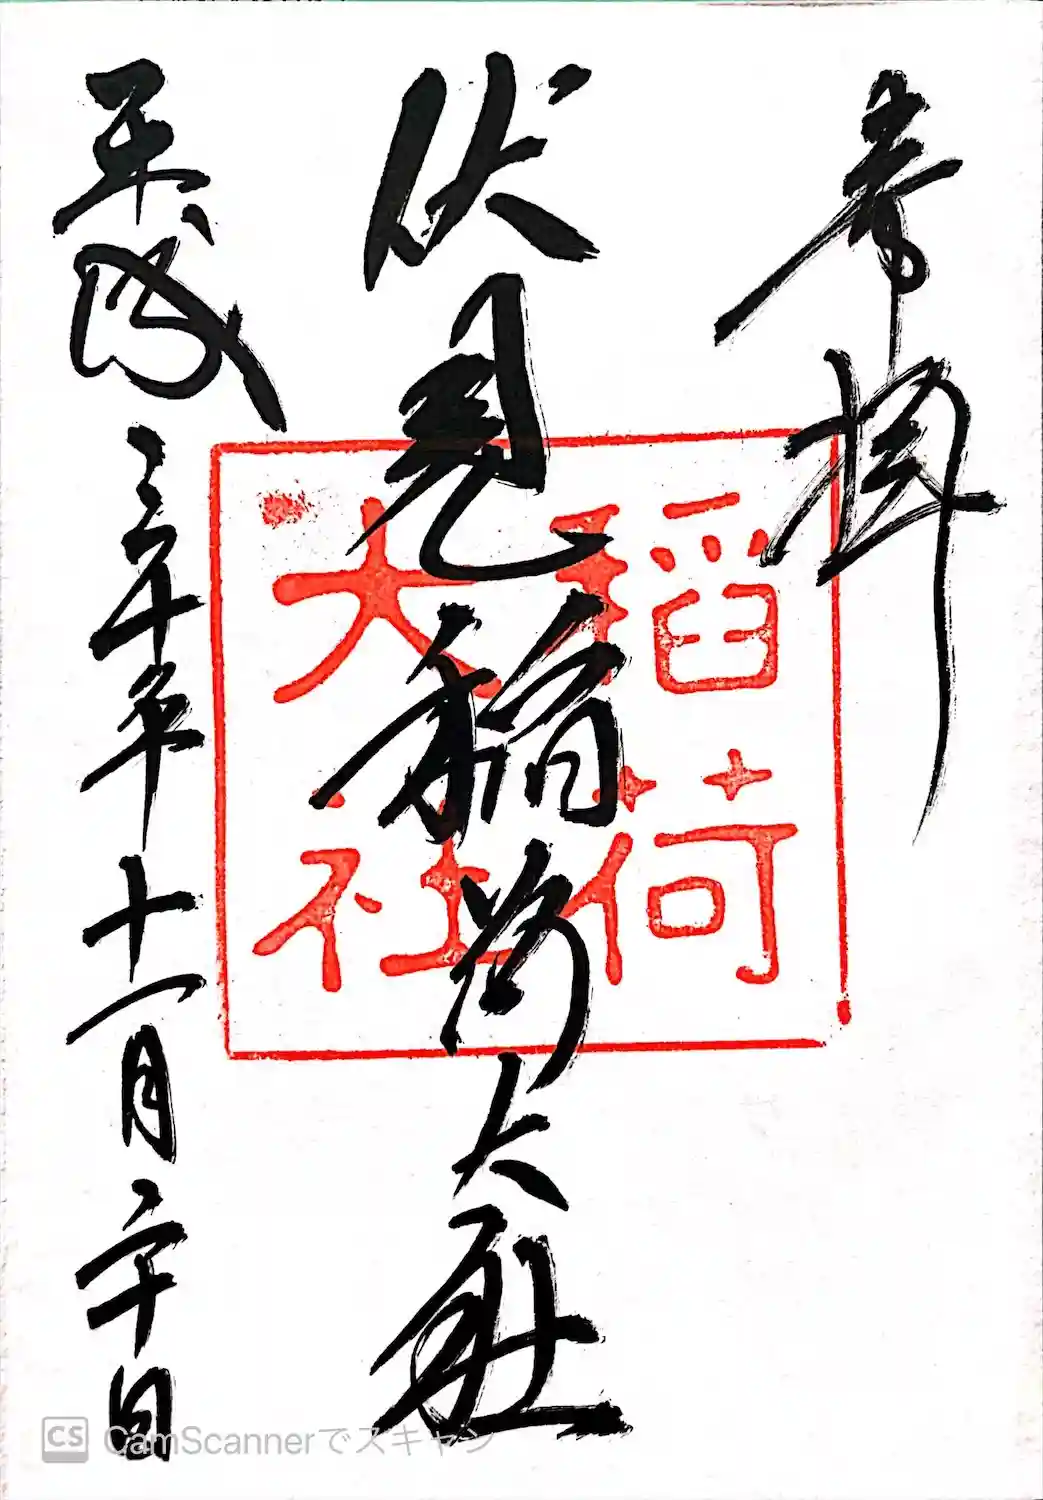 奉拝
伏見稲荷大社
平成三十年十一月二十日
稻荷
大社
CS CamScannerでスキャン